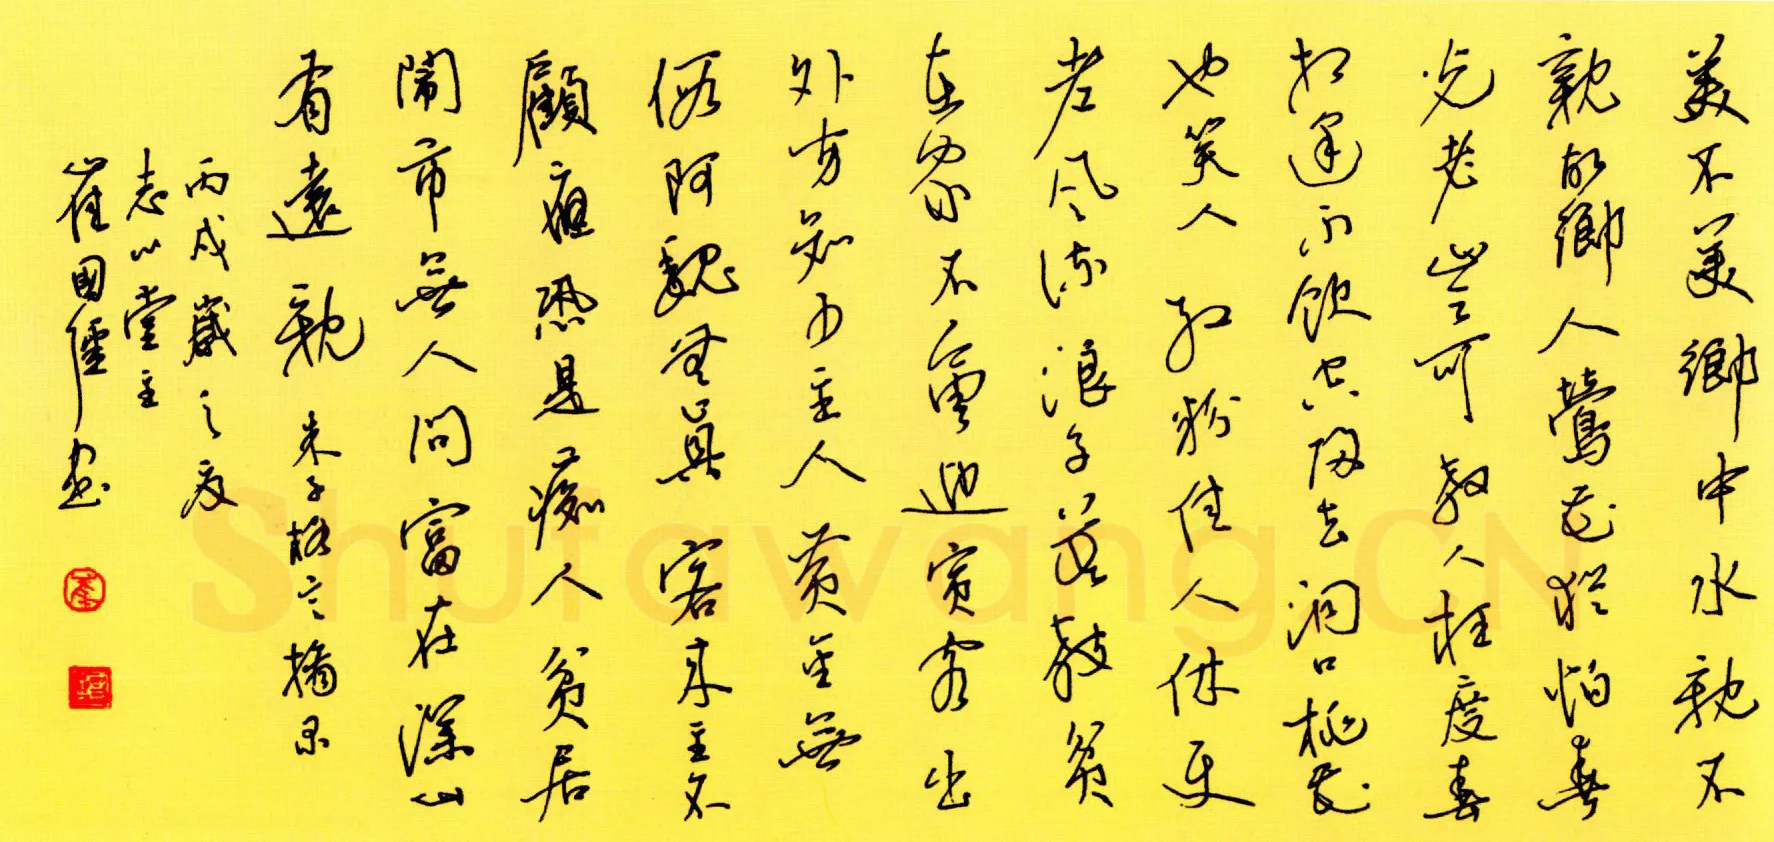 美不美鄉中水親不
親故鄉人鶯花猶怕春
光老豈可教人枉度春
相逢不飲空歸去洞口桃花
也笑人 紅粉佳人休使
老風流浪子莫教貧
在家不會迎賓客出
外方知少主人 黃金無
假阿魏無真 客來主不
顧應恐是痴人 貧居
鬧市無人問富在深山
有遠親 朱子格言摘录
丙戌歲之夏
志堂主
崔國書
Shufawang.CN